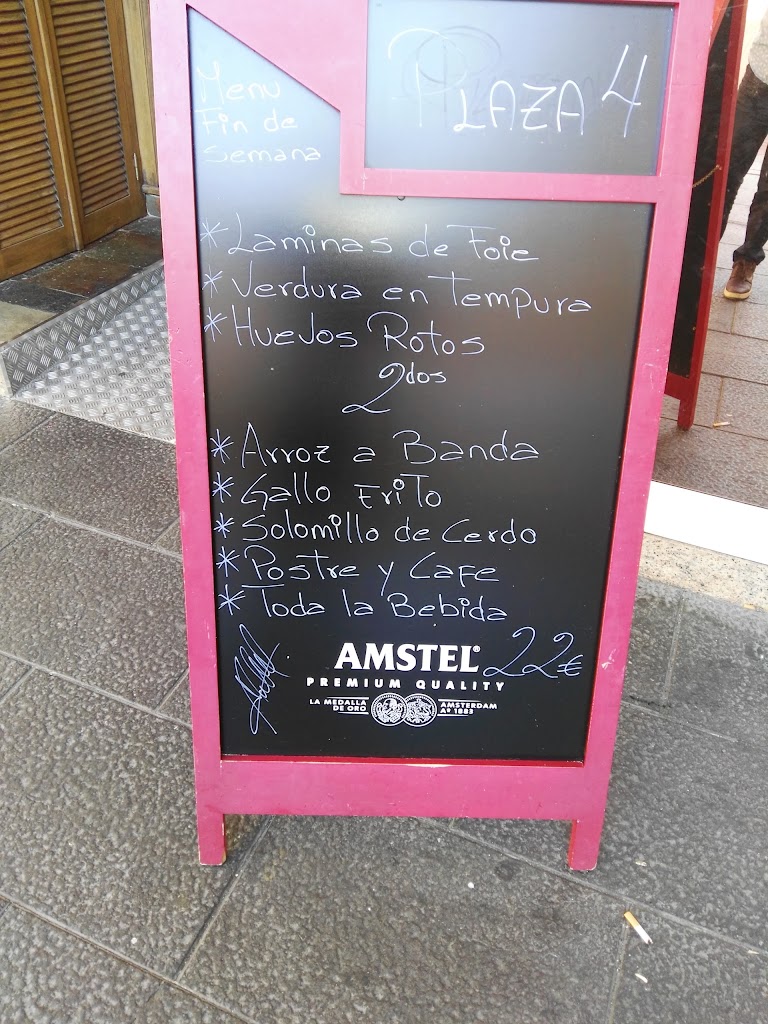 Menu
Fin de
Semana
PLAZA 4
* Laminas de Foie
* Verdura en Tempura
* HueJos Rotos
2dos
* Arroz a Banda
* Gallo FriTo
* Solomillo de Cerdo
* Postre y Cafe
* Toda la Bebida
22€
AMSTEL®
PREMIUM QUALITY
LA MEDALLA DE ORO
AMSTERDAM Aº 1883